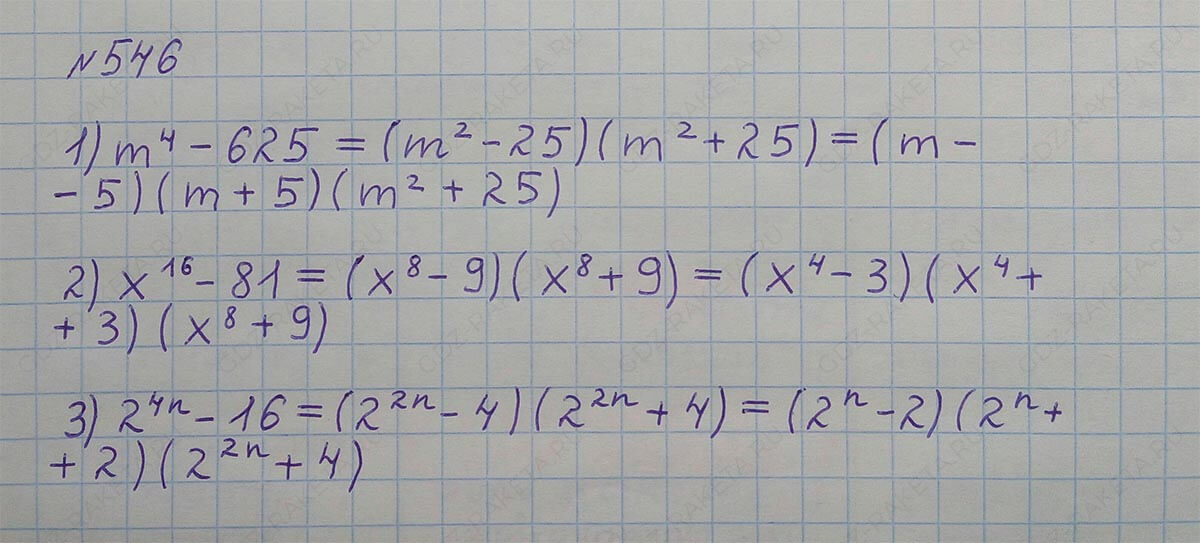 №546
1) m⁴ - 625 = (m² - 25)(m² + 25) = (m -
- 5)(m + 5)(m² + 25)
2) x¹⁶ - 81 = (x⁸ - 9)(x⁸ + 9) = (x⁴ - 3)(x⁴ +
+ 3)(x⁸ + 9)
3) 2⁴ⁿ - 16 = (2²ⁿ - 4)(2²ⁿ + 4) = (2ⁿ - 2)(2ⁿ +
+ 2)(2²ⁿ + 4)
GDZ-RAKETA.RU